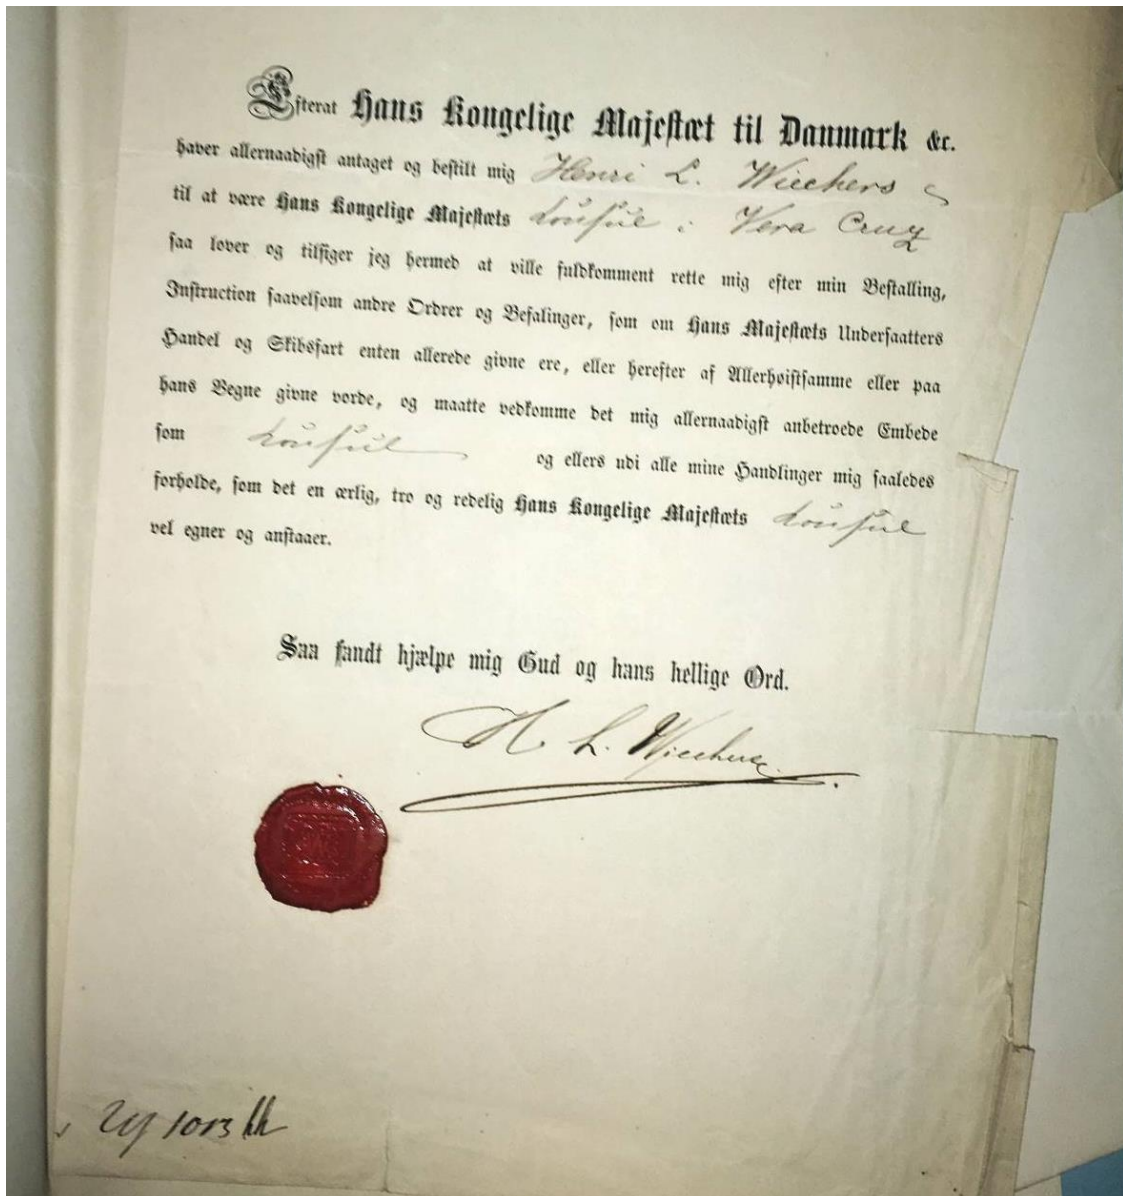 Efterat Hans Kongelige Majestæt til Danmark &c.
haver allernaadigst antaget og bestilt mig Henri L. Wiechers
til at være Hans Kongelige Majestæts Konsul i Vera Cruz
saa lover og tilsiger jeg hermed at ville fuldkomment rette mig efter min Bestalling,
Instruction saavelsom andre Ordrer og Befalinger, som om Hans Majestæts Undersaatters
Handel og Skibsfart enten allerede givne ere, eller herefter af Allerhøistsamme eller paa
hans Vegne givne vorde, og maatte vedkomme det mig allernaadigst anbetroede Embede
som Konsul og ellers udi alle mine Handlinger mig saaledes
forholde, som det en ærlig, tro og redelig Hans Kongelige Majestæts Konsul
vel egner og anstaaer.
Saa sandt hjælpe mig Gud og hans hellige Ord.
H. L. Wiechers.
1013